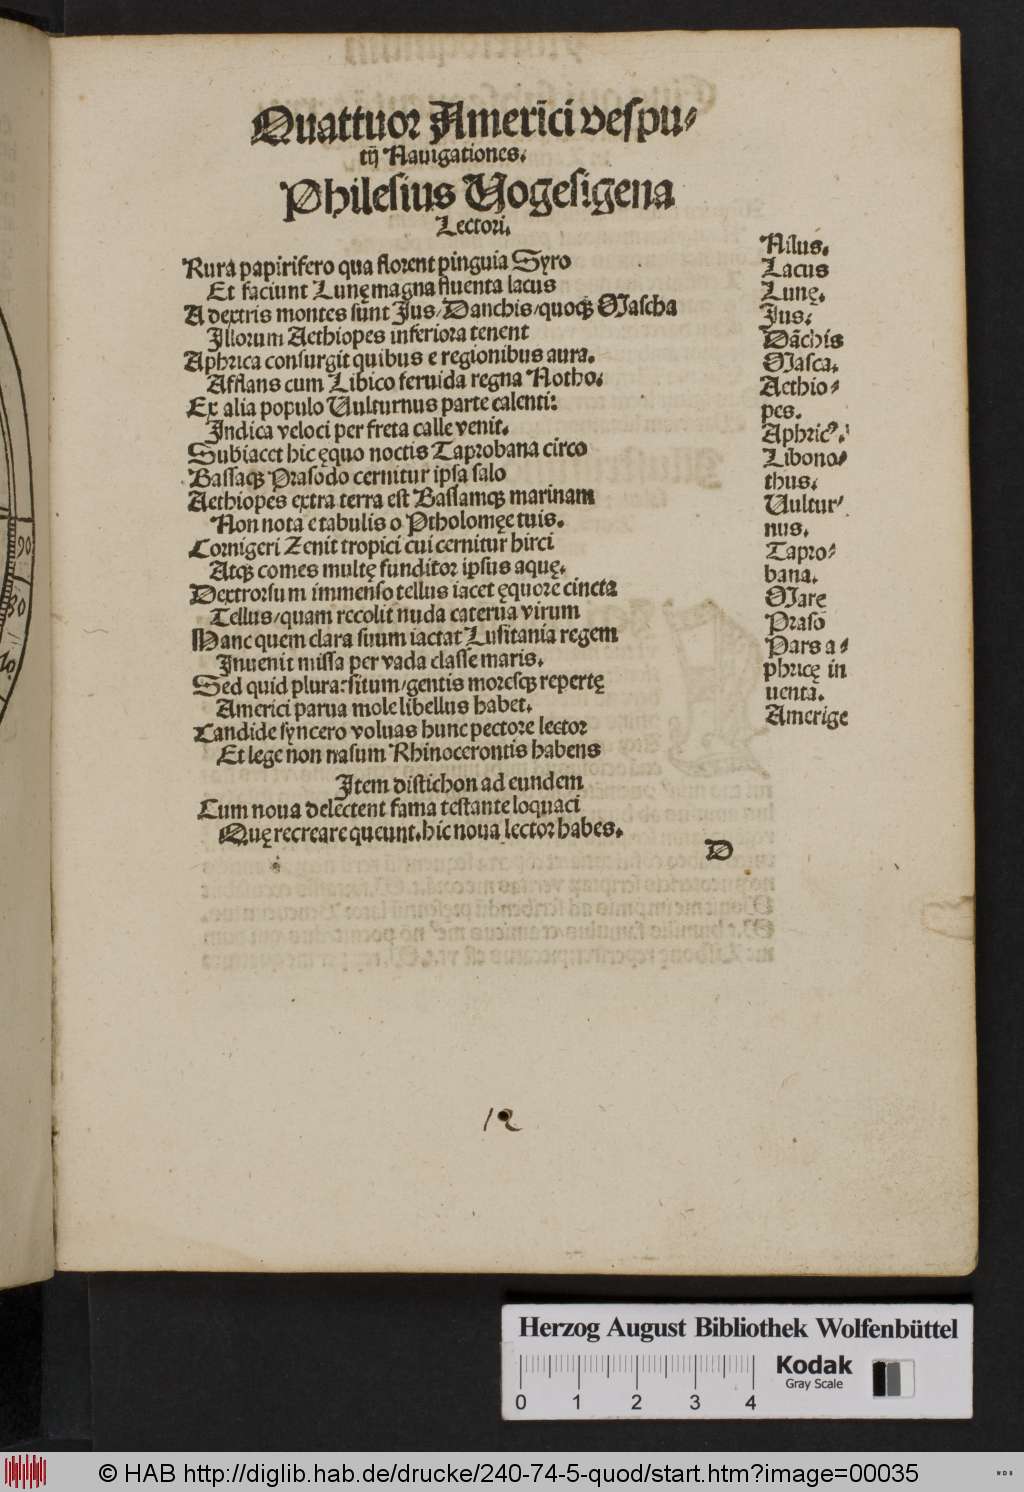 Quattuor Americi vespu-
tij Nauigationes.
Philesius Vogesigena
Lectori.
Rura papirifero qua florent pinguia Syro
Et faciunt Lunę magna fluenta lacus
A dextris montes sunt Ius/Danchis/quoqꝫ Mascha
Illorum Aethiopes inferiora tenent
Aphrica consurgit quibus e regionibus aura.
Afflans cum Libico feruida regna Notho.
Ex alia populo Vulturnus parte calenti:
Indica veloci per freta calle venit.
Subiacet hic ęquo noctis Taprobana circo
Bassaqꝫ Prasodo cernitur ipsa salo
Aethiopes extra terra est Bassamqꝫ marinam
Non nota e tabulis o Ptholomęe tuis.
Cornigeri Zenit tropici cui cernitur hirci
Atqꝫ comes multę funditor ipsus aquę.
Dextrorsum immenso tellus iacet ęquore cincta
Tellus/quam recolit nuda caterua virum
Hanc quem clara suum iactat Lusitania regem
Inuenit missa per vada classe maris.
Sed quid plura: situm/gentis moresqꝫ repertę
Americi parua mole libellus habet.
Candide syncero voluas hunc pectore lector
Et lege non nasum Rhinocerontis habens
Item distichon ad eundem
Cum noua delectent fama testante loquaci
Quę recreare queunt.hic noua lector habes.
D
Nilus.
Lacus
Lunę.
Ius.
Dãchis
Masca.
Aethio-
pes.
Aphricꝰ.
Libono-
thus.
Vultur-
nus.
Tapro-
bana.
Mare
Prasō
Pars a-
phricę in
uenta.
Amerige
12
90
80
Herzog August Bibliothek Wolfenbüttel
Kodak
Gray Scale
0 1 2 3 4
© HAB http://diglib.hab.de/drucke/240-74-5-quod/start.htm?image=00035